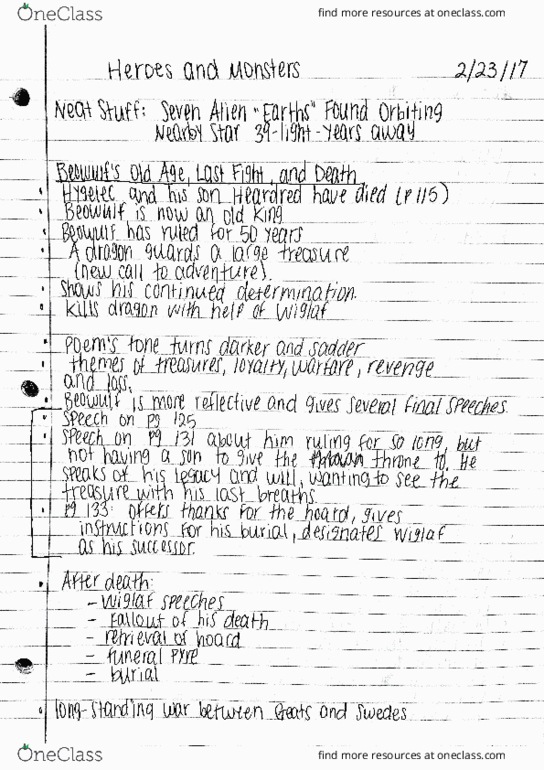 OneClass
find more resources at oneclass.com
Heroes and Monsters 2/23/17
Neat Stuff: Seven Alien "Earths" Found Orbiting
Nearby Star 39-light-years away
Beowulf's Old Age, Last Fight, and Death
Hygelec and his son Heardred have died (P 115)
Beowulf is now an old king
Beowulf has ruled for 50 years
A dragon guards a large treasure
(new call to adventure).
Shows his continued determination.
kills dragon with help of Wiglaf
poem's tone turns darker and sadder
themes of treasures, loyalty, warfare, revenge
and loss.
Beowulf is more reflective and gives several final speeches.
speech on pg 125
speech on pg 131 about him ruling for so long, but
not having a son to give the throne to. He
speaks of his legacy and will, wanting to see the
treasure with his last breaths
pg 133: offers thanks for the hoard, gives
instructions for his burial, designates Wiglaf
as his successor.
After death:
- Wiglaf speeches
- fallout of his death
- retrieval of hoard
- funeral pyre
- burial
long-standing war between Geats and Swedes
OneClass
find more resources at oneclass.com